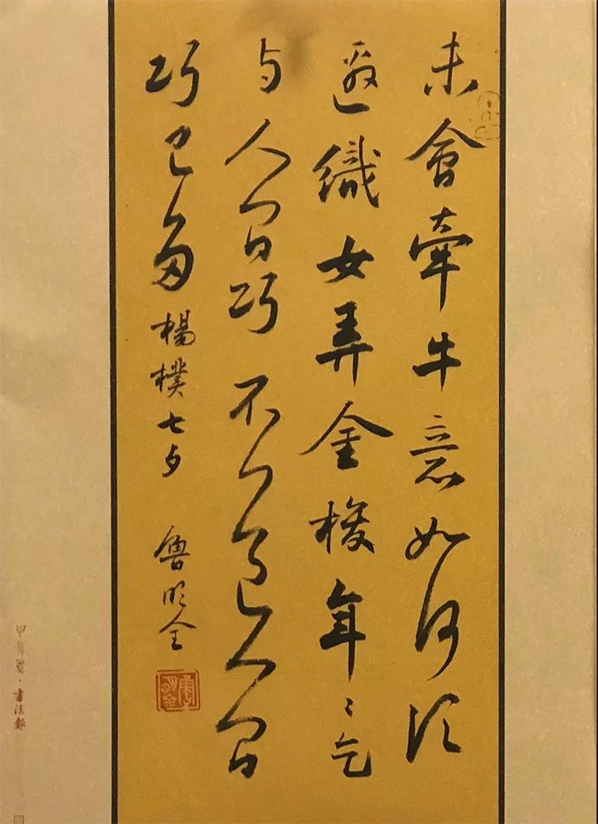 未會牽牛意如何須
邀織女弄金梭年々乞
与人间巧不道人间
巧已多 楊樸七夕 魯明全
書法報